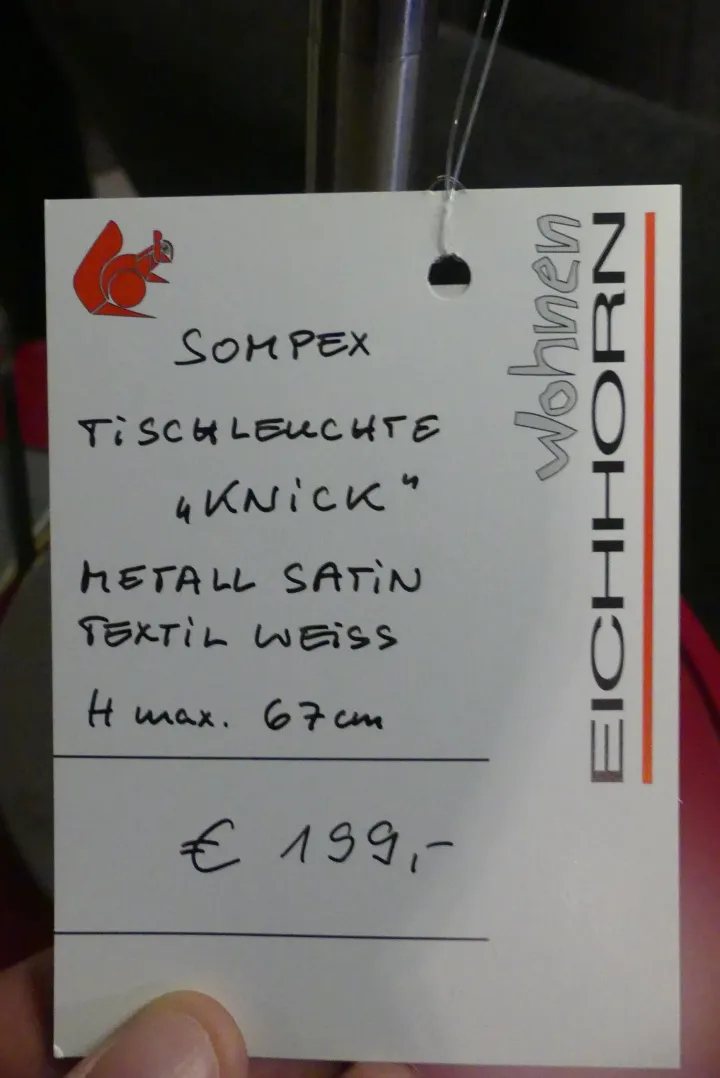 SOMPEX
TISCHLEUCHTE
„KNICK"
METALL SATIN
TEXTIL WEISS
H max. 67cm
€ 199,-
Wohnen
EICHHORN